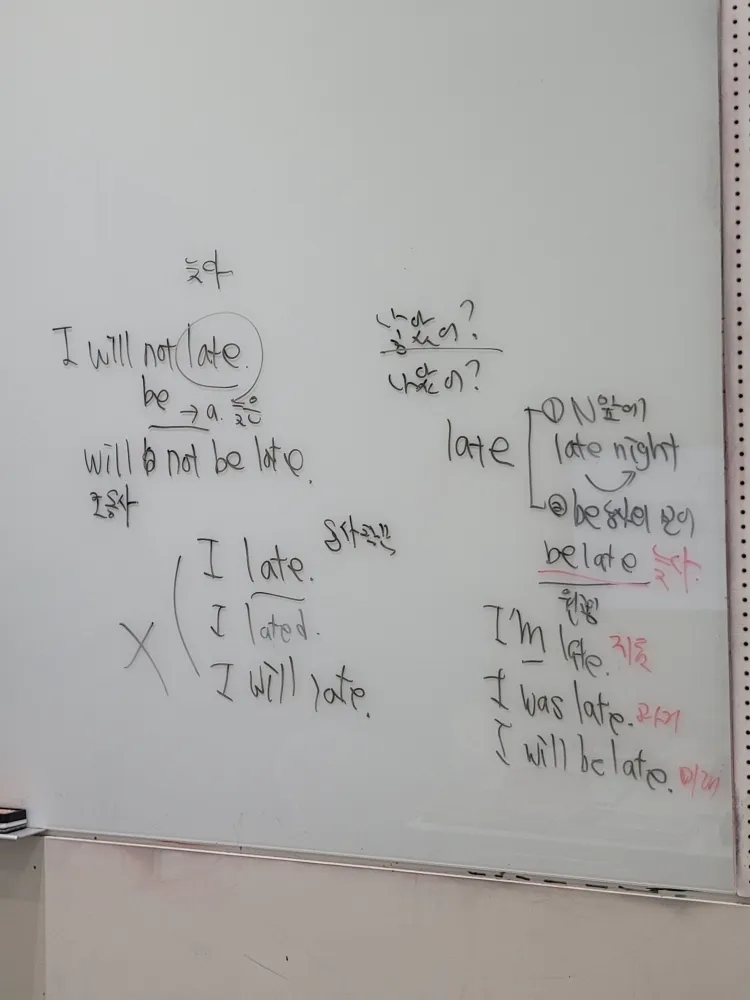 늦다
I will not late.
be → a. 늦은
will not be late.
조동사
I late. 동사
I lated.
I will late.
X
낳았어?
나았어?
late
① N앞에
late night
② be동사의 보어
be late 늦다.
원형
I'm late. 지금
I was late. 과거
I will be late. 미래